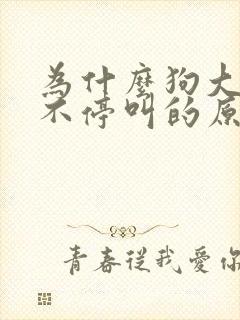 為什麼狗大
不停叫的原
青春從我愛你